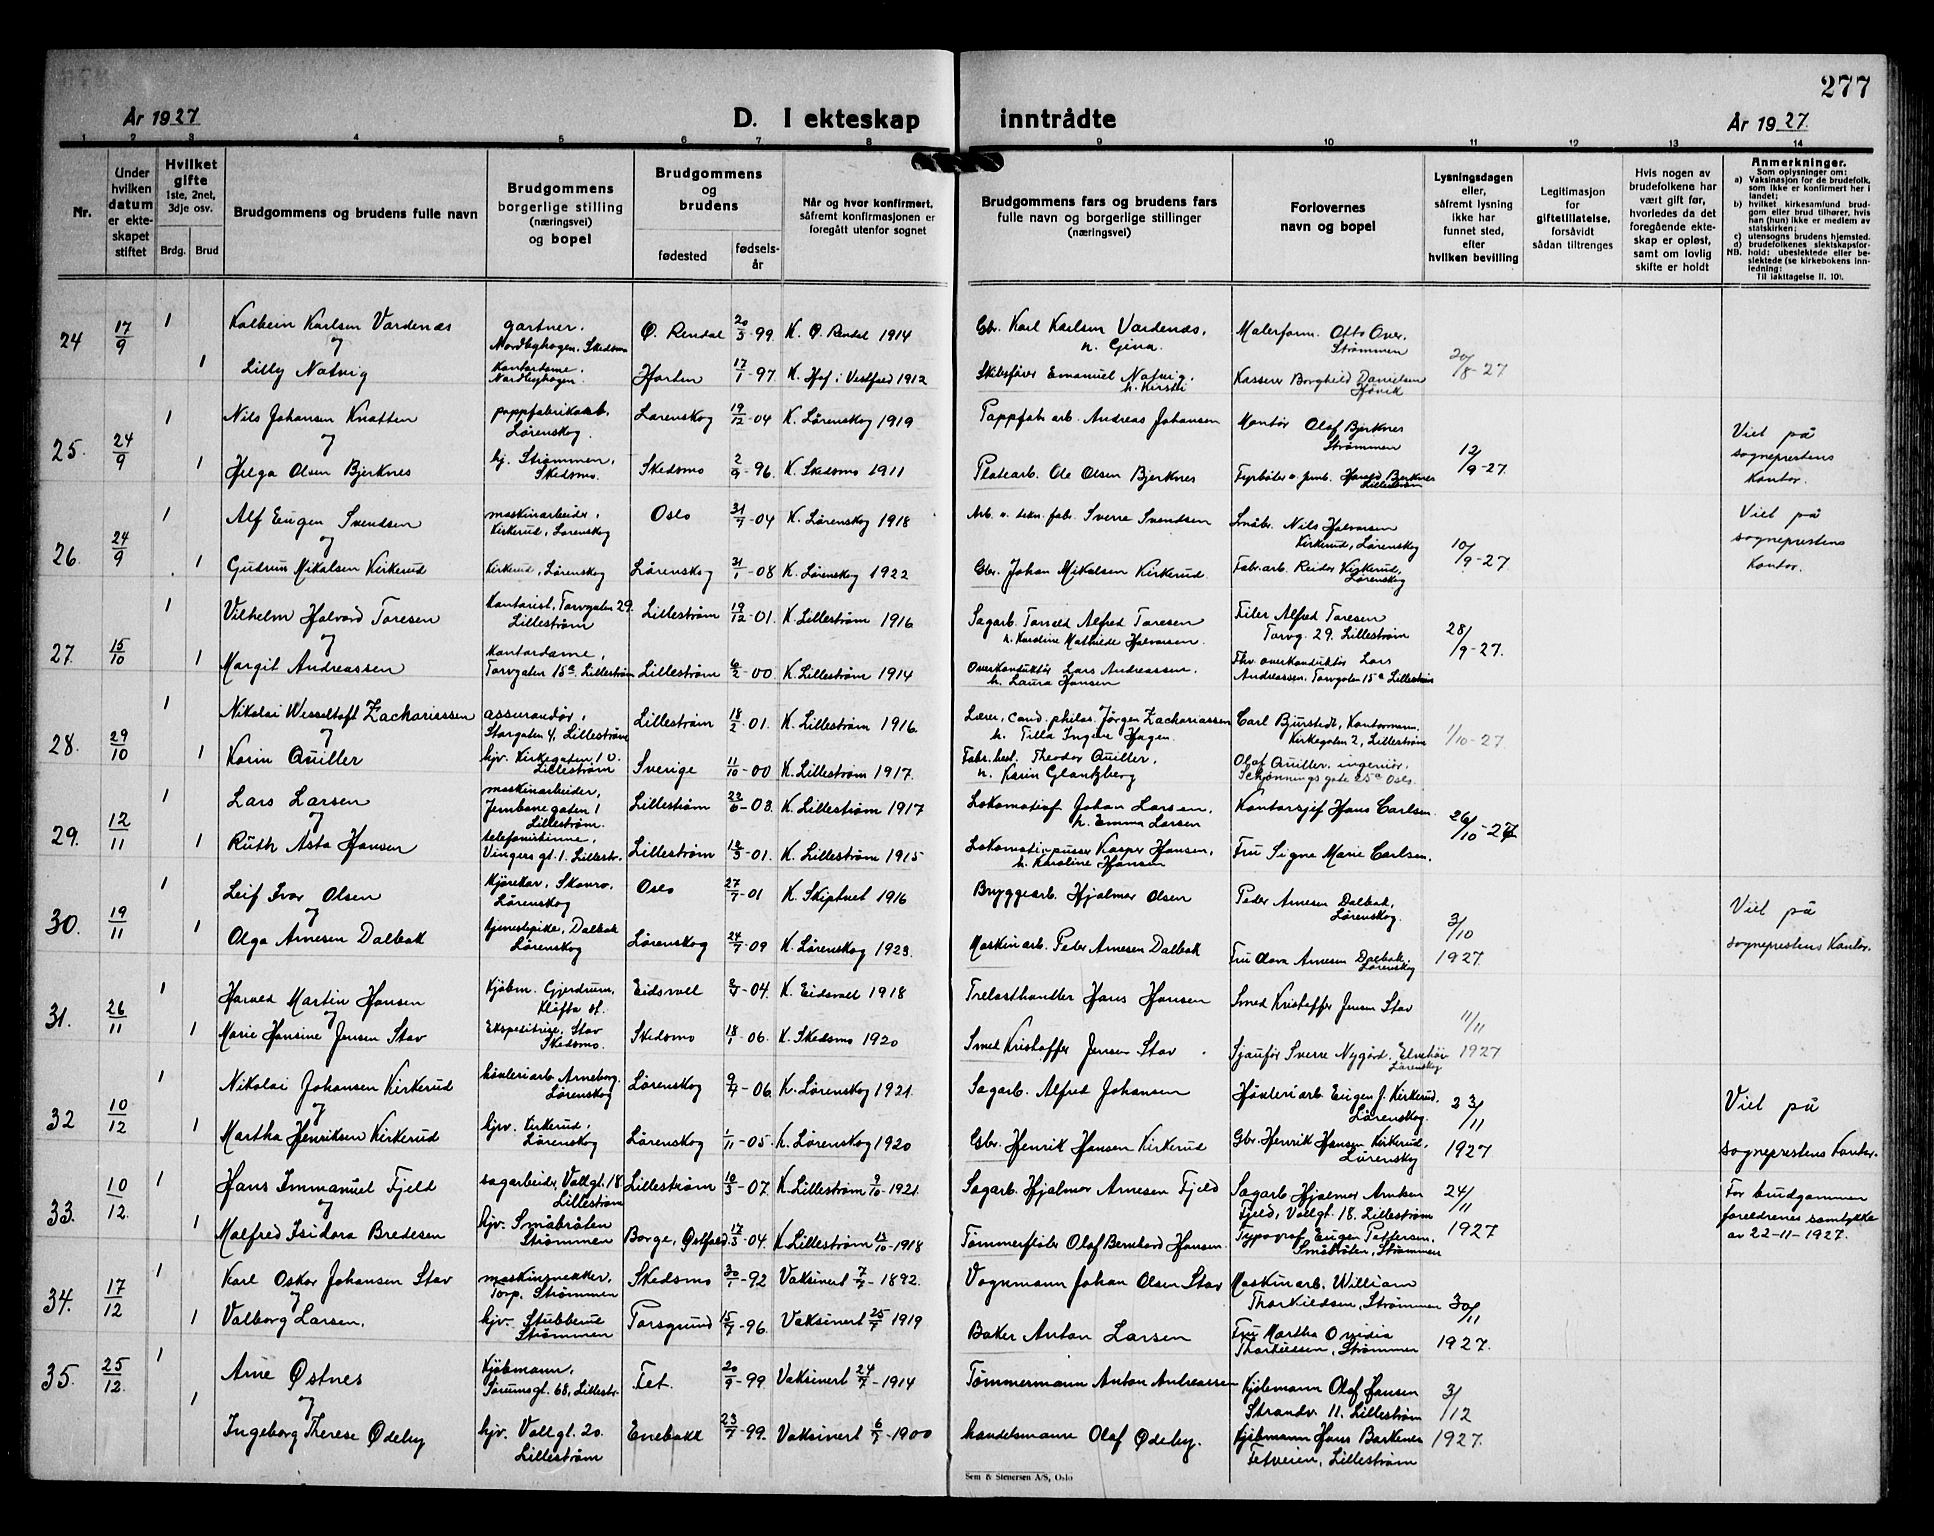 277
År 1927
D. I ekteskap inntrådte
År 1927.
1 2 3 4 5 6 7 8 9 10 11 12 13 14
Nr.
Under hvilken datum er ekteskapet stiftet
Hvilket gifte
1ste, 2net, 3dje osv.
Brdg. Brud
Brudgommens og brudens fulle navn
Brudgommens borgerlige stilling (næringsvei) og bopel
Brudgommens og brudens
fødested
fødsels-år
Når og hvor konfirmert, såfremt konfirmasjonen er foregått utenfor sognet
Brudgommens fars og brudens fars fulle navn og borgerlige stillinger (næringsvei)
Forlovernes navn og bopel
Lysningsdagen eller, såfremt lysning ikke har funnet sted, efter hvilken bevilling
Legitimasjon for giftetillatelse, forsåvidt sådan tiltrenges
Hvis nogen av brudefolkene har vært gift før, hvorledes da det foregående ekteskap er opløst, samt om lovlig skifte er holdt
Anmerkninger.
Som oplysning om:
a) Vaksinasjon for de brudefolk, som ikke er konfirmert her i landet;
b) hvilket kirkesamfund brudgom eller brud tilhører, hvis han (hun) ikke er medlem av statskirken;
c) utensogns brudens hjemsted.
d) brudefolkenes slektskapsforhold: ubeslektede eller beslektede (se kirkebokens innledning:
NB.
Til iakttagelse II. 10).
24 17/9 1 Kolbein Karlsen Vardenæs gartner, Nordbyhagen, Skedsmo Ø. Rendal 20/3-99 K. Ø. Rendal 1914 Gbr. Karl Karlsen Vardenæs, h. Gina. Malerform. Otto Over, Strømmen 20/8-27
og
1 Lilly Natvig Kontordame, Nordbyhagen Horten 17/1-97 K. Hof i Vestfold 1912 Skibsfører Emanuel Natvig, h. Kirsti Kasserer Borghild Danielsen Høvik
25. 24/9 1 Nils Johansen Knatten pappfabrikarb. Lørenskog. Lørenskog 19/12-04 K. Lørenskog 1919 Pappfab. arb. Andreas Johansen Kontor Olaf Bjerknes Strømmen 12/9-27 Viet på sogneprestens Kontor.
og
1 Helga Olsen Bjerknes hj. Strømmen, Skedsmo. Skedsmo 2/9-96 K. Skedsmo 1911 Platearb. Ole Olsen Bjerknes Fyrbøter v. jernb. Harald Bjerknes Lillestrøm
26. 24/9 1 Alf Eugen Svendsen maskinarbeider, Kirkerud, Lørenskog Oslo 31/7-04 K. Lørenskog 1918 Arb. v. dekn. fab. Sverre Svendsen Småbr. Nils Halvorsen Kirkerud, Lørenskog 10/9-27 Viet på sogneprestens Kontor.
og
1 Gudrun Mikalsen Kirkerud Kirkerud, Lørenskog Lørenskog 31/1-08 K. Lørenskog 1922 Gbr. Johan Mikalsen Kirkerud. Fab.arb. Reidar Kirkerud, Lørenskog
27. 15/10 1 Vilhelm Halvard Toresen Kontorist, Torvgaten 29. Lillestrøm Lillestrøm 19/12-01. K. Lillestrøm 1916 Sagarb. Torvald Alfred Toresen h. Karoline Mathilde Halvorsen. Filer Alfred Toresen Torvg. 29. Lillestrøm 28/9-27.
og
1 Margit Andreassen Kontordame, Torvgaten 15a Lillestrøm Lillestrøm 6/2-00 K. Lillestrøm 1914 Overkonduktør Lars Andreassen. h. Laura Hansen Fhv. overkonduktør Lars Andreassen, Torvgaten 15a Lillestrøm
28. 29/10 1 Nikolai Wesseltoft Zachariassen assurandør, Storgaten 4, Lillestrøm Lillestrøm 18/2-01. K. Lillestrøm 1916. Lærer, cand. philos. Jørgen Zachariassen h. Tilla Inger Hagen. Carl Bjurstedt, Kontormann, Kirkegaten 2, Lillestrøm 1/10-27
og
1 Karin Quiller hjv. Kirkegaten 10. Lillestrøm Sverige 11/10-00 K. Lillestrøm 1917. Fabr. best. Theodor Quiller, h. Karin Glantzberg Olaf Quiller, ingeniør, Schønnings gate 25a Oslo.
29. 12/11 1 Lars Larsen maskinarbeider, Jernbanegaten 1 Lillestrøm. Lillestrøm 22/6-03. K. Lillestrøm 1917 Lokomotivf. Johan Larsen, h. Emma Larsen Kontorsjef Hans Carlsen 26/10-27
og
1 Ruth Asta Hansen telefonistinne, Vingers gt. 1. Lillestr. Lillestrøm 12/3-01. K. Lillestrøm 1915 Lokomotivpusser Kasper Hansen, h. Karoline Hansen Fru Signe Marie Carlsen.
30. 19/11 1 Leif Ivar Olsen Kjørekar, Skaaro. Lørenskog Oslo 27/7-01 K. Skiptvet 1916 Bryggearb. Hjalmar Olsen Peder Arnesen Dalbak, Lørenskog. 3/10 1927 Viet på sogneprestens Kontor.
og
1 Olga Arnesen Dalbak tjenestepike, Dalbak Lørenskog Lørenskog 24/7-09 K. Lørenskog 1923. Maskinarb. Peder Arnesen Dalbak Fru Olava Arnesen Dalbak, Lørenskog
31. 26/11 1 Harald Martin Hansen Kjøbm. Gjerdrum, Kløfta st. Eidsvoll 2/7-04. K. Eidsvoll 1918 Trelasthandler Hans Hansen Smed Kristoffer Jensen Stav 11/11 1927
og
1 Marie Hansine Jensen Stav Ekspeditrise, Stav Skedsmo. Skedsmo 18/1-06. K. Skedsmo 1920 Smed Kristoffer Jensen Stav Sjaufør Sverre Nygård, Lørenskog
32 10/12 1 Nikolai Johansen Kirkerud høvleriarb. Arneborg. Lørenskog Lørenskog 9/7-06. K. Lørenskog 1921. Sagarb. Alfred Johansen Høvleriarb. Eugen J. Kirkerud, Lørenskog. 23/11 1927 Viet på sogneprestens Kontor.
og
1 Martha Henriksen Kirkerud hjv. Kirkerud, Lørenskog Lørenskog 1/11-05. K. Lørenskog 1920 Gbr. Henrik Hansen Kirkerud Gbr. Henrik Hansen Kirkerud, Lørenskog
33. 10/12. 1 Hans Immanuel Fjeld sagarbeider, Vollgt. 18 Lillestrøm Lillestrøm 10/3-07. K. Lillestrøm 9/10-1921. Sagarb. Hjalmar Arnesen Fjeld Sagarb. Hjalmar Arnesen Fjeld, Vollgt. 18. Lillestrøm 24/11 1927 For brudgommen foreldrenes samtykke av 22-11-1927.
og
1 Malfred Isidora Bredesen hjv. Småbråten Strømmen Borge, Østfold. 17/3-04. K. Lillestrøm 13/10-1918 Tømmerfløter Olaf Bernhard Hansen. Typograf Eugen Pettersen, Småbråten, Strømmen
34. 17/12 1 Karl Oskar Johansen Stav maskinsnekker, Torp. Strømmen Skedsmo 30/1-92 Vaksinert 7/7-1892. Vognmann Johan Olsen Stav Maskinarb. William Thorkildsen, Strømmen 30/11 1927.
og
1 Valborg Larsen, hjv. Stubberud Strømmen Porsgrund 15/7-96. Vaksinert 25/7 1919 Baker Anton Larsen Fru Martha Ovidia Thorkildsen, Strømmen
35. 25/12. 1 Arne Østnes Kjøbmann, Sørumsgt. 68, Lillestr. Fet. 20/9-99 Vaksinert 24/7-1914 Tømmermann Anton Andreassen Kjøbmann Olaf Hansen Strandv. 11. Lillestrøm 3/12 1927.
og
1 Ingeborg Therese Ødeby hjv. Vollgt. 20. Lillestrøm Enebakk 23/7-99. Vaksinert 6/7-1900 handelsmann Olaf Ødeby. Kjøbmann Hans Barkenes Fetveien, Lillestrøm
Sem & Stenersen A/S, Oslo